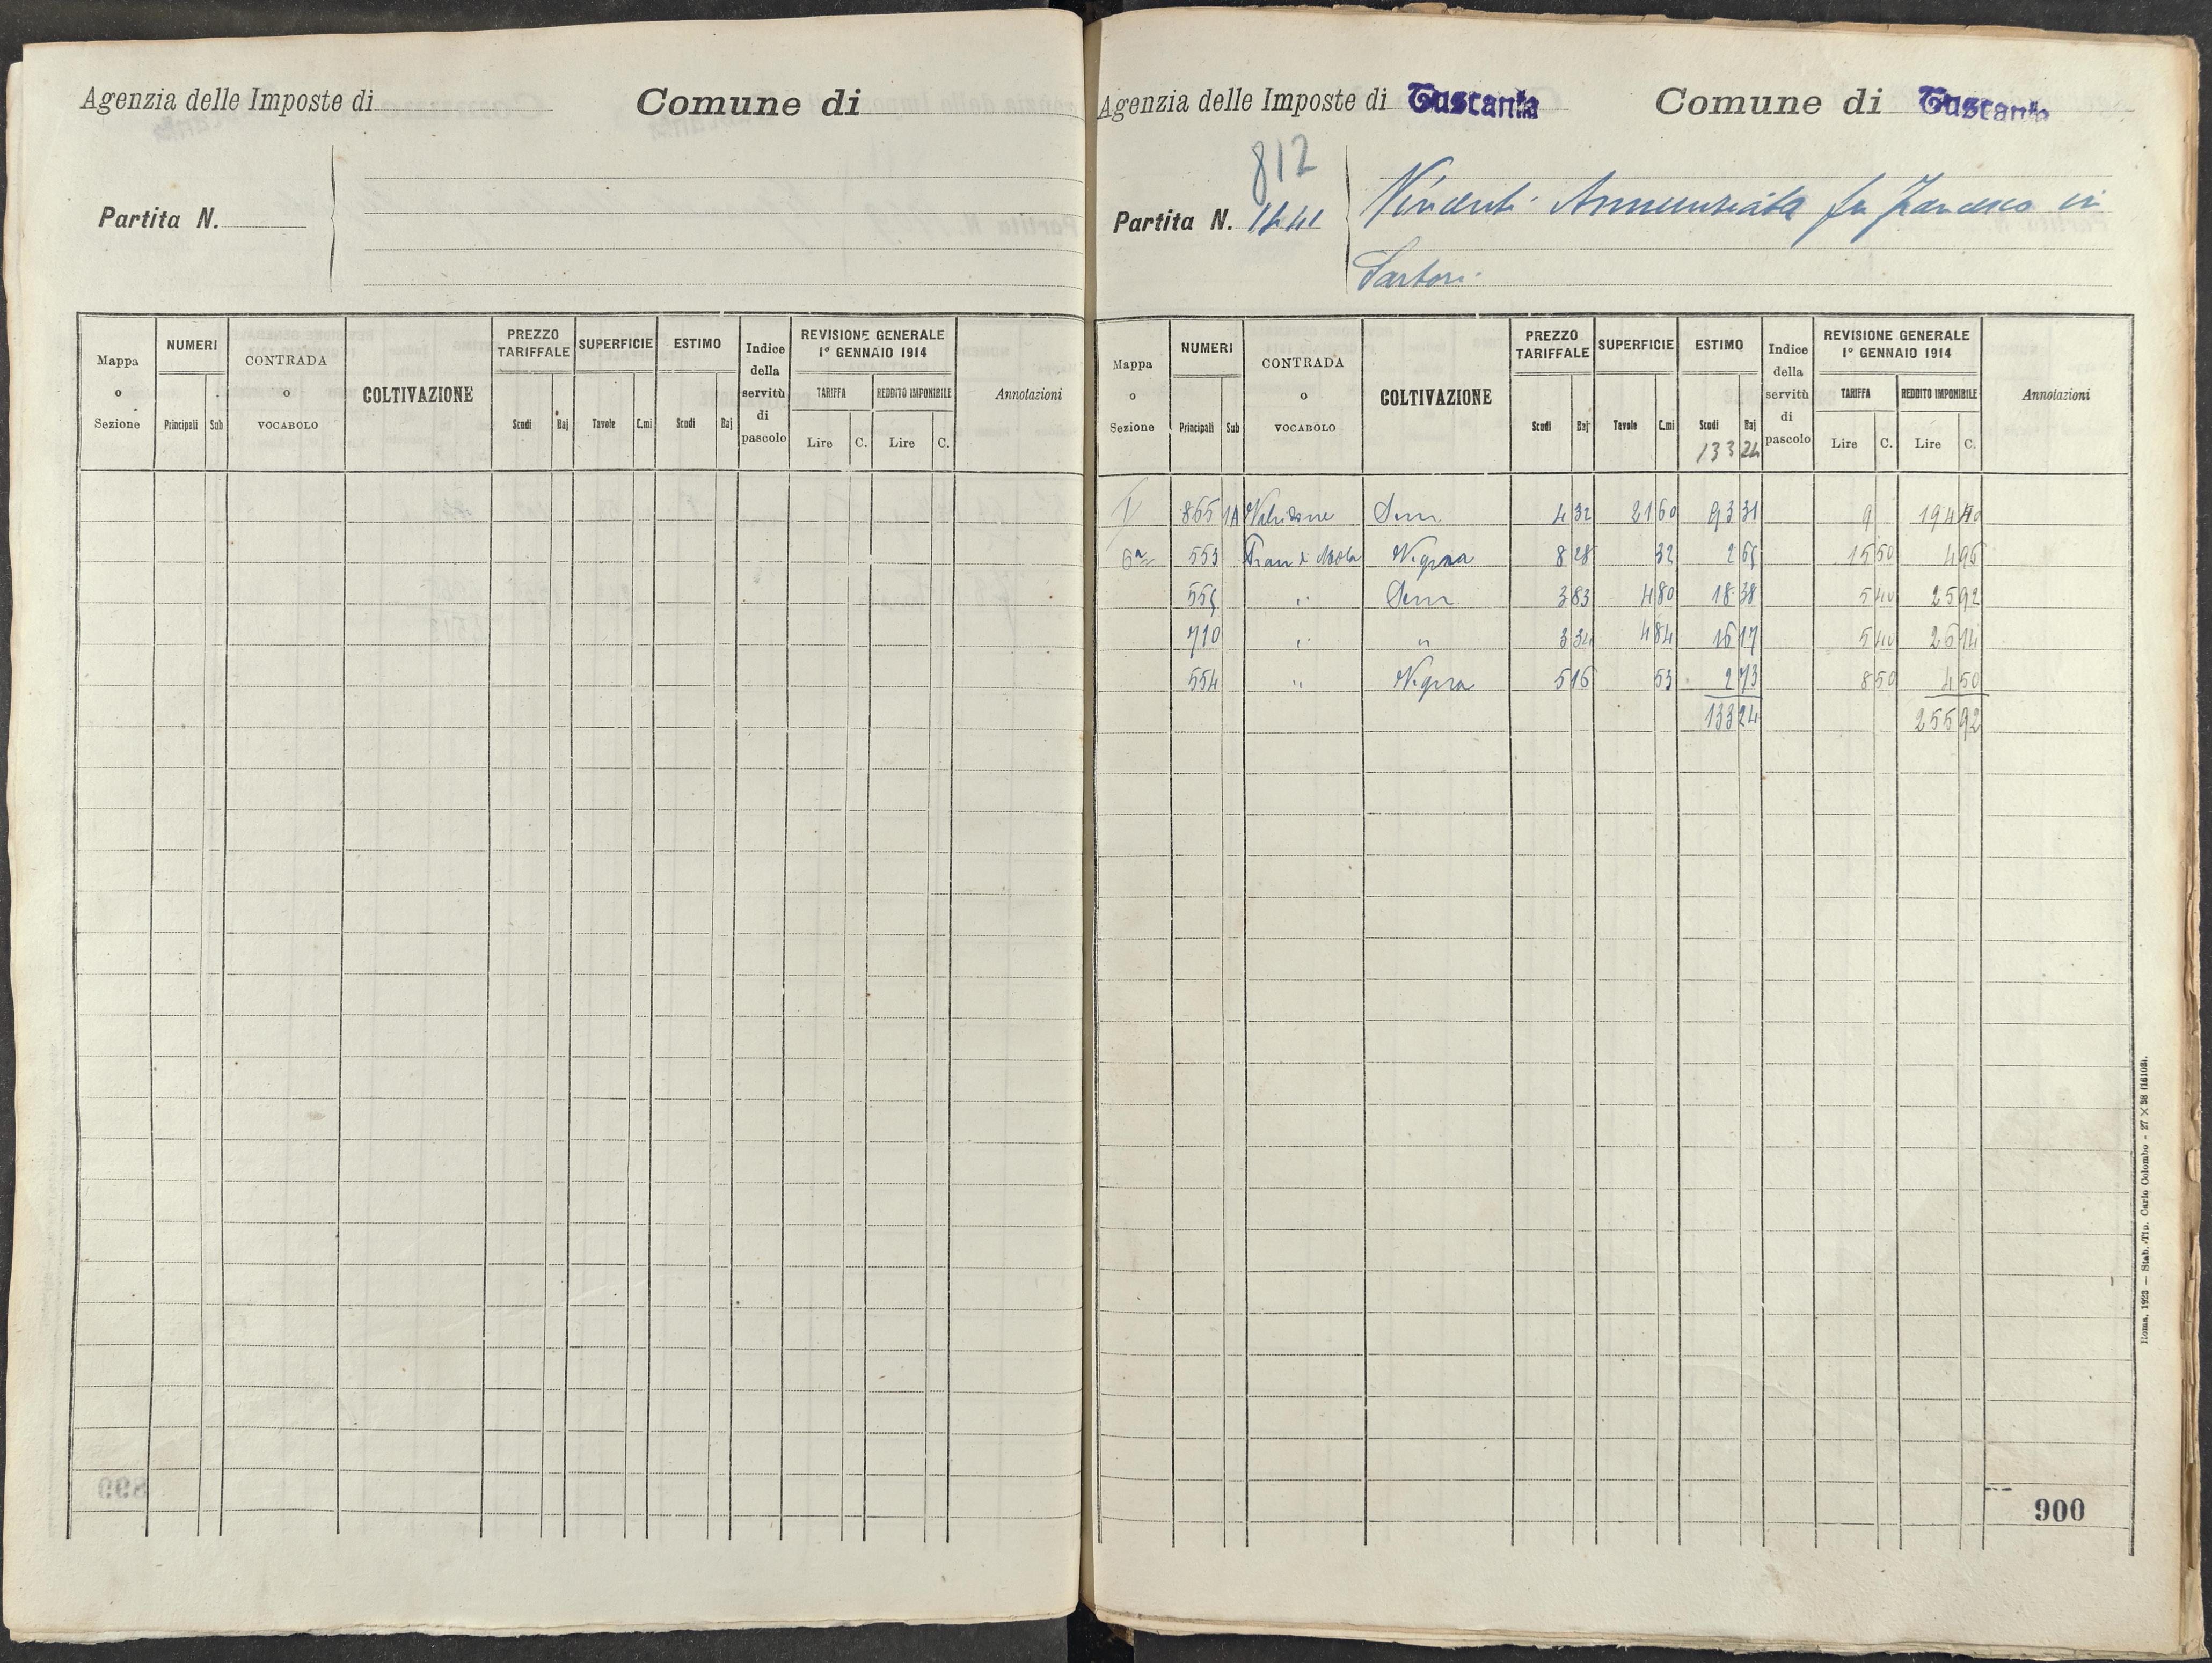 Agenzia delle Imposte di Comune di
Partita N.
Mappa o Sezione
NUMERI
Principali Sub
CONTRADA o VOCABOLO
COLTIVAZIONE
PREZZO TARIFFALE
Scudi Baj
SUPERFICIE
Tavole C.mi
ESTIMO
Scudi Baj
Indice della servitù di pascolo
REVISIONE GENERALE
1° GENNAIO 1914
TARIFFA REDDITO IMPONIBILE
Lire C. Lire C.
Annotazioni
Agenzia delle Imposte di Tuscania Comune di Tuscania
812
Partita N.
Annunziata fu Francesco in
Sartori
Mappa o Sezione
NUMERI
Principali Sub
CONTRADA o VOCABOLO
COLTIVAZIONE
PREZZO TARIFFALE
Scudi Baj
SUPERFICIE
Tavole C.mi
ESTIMO
Scudi Baj
133 24
Indice della servitù di pascolo
REVISIONE GENERALE
1° GENNAIO 1914
TARIFFA REDDITO IMPONIBILE
Lire C. Lire C.
Annotazioni
865 1A Sem 4 32 21 60 93 31 9 194 40
6a 553 Pian di Mola Vigna 8 28 32 2 65 15 50 4 96
555 " Sem 3 83 4 80 18 38 5 40 25 92
710 " " 3 34 4 84 16 17 5 40 26 14
554 " Vigna 5 16 53 2 73 8 50 4 50
133 24 255 92
Roma, 1923 — Stab. Tip. Carlo Colombo - 27 × 38 (16103).
900